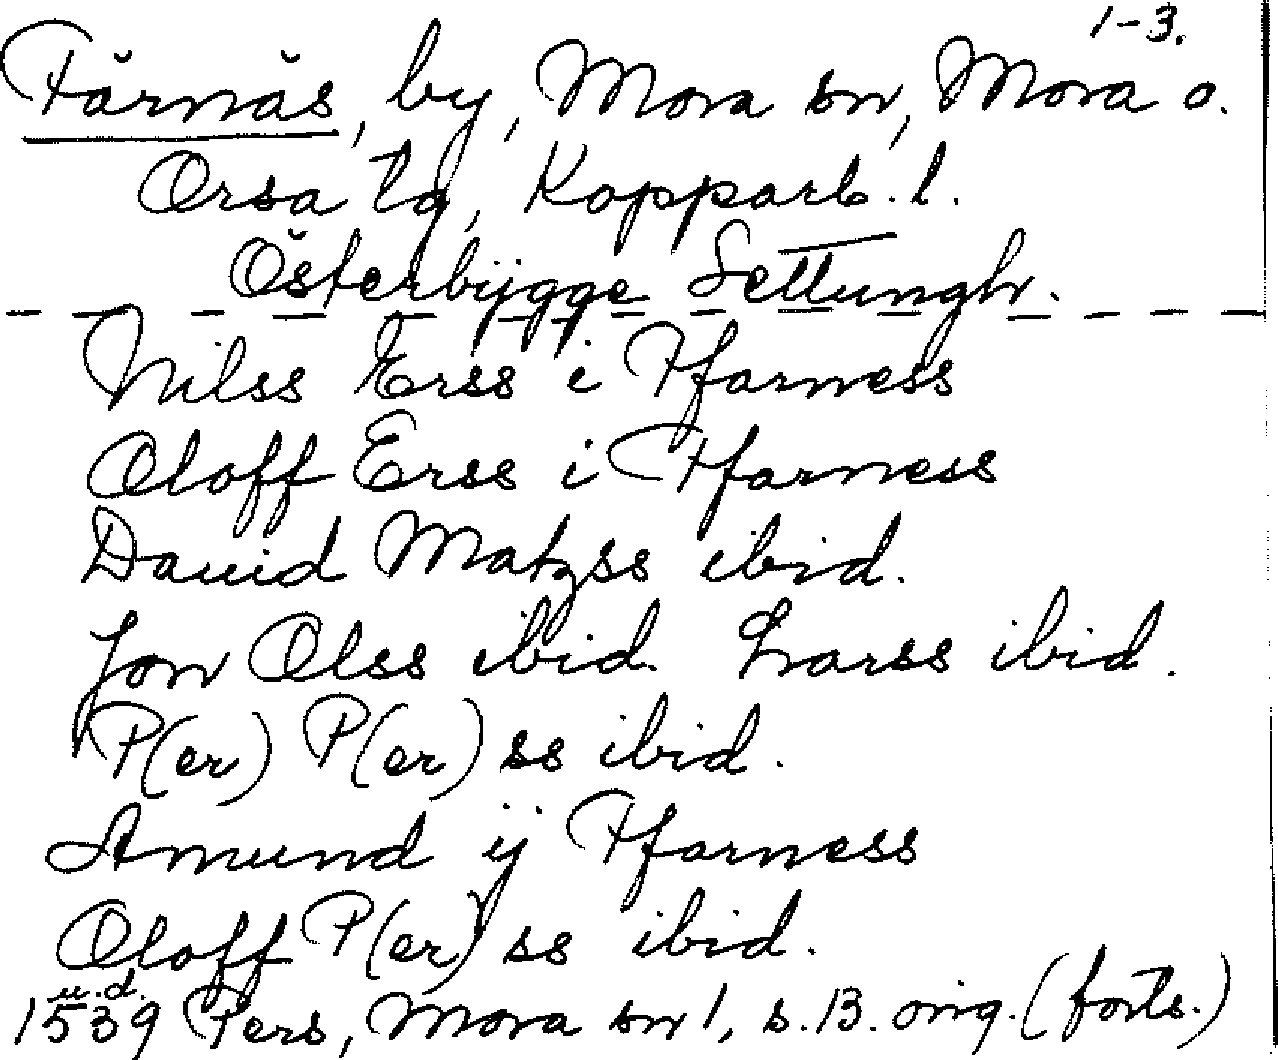 1-3.
Färnäs, by, Mora sn, Mora o.
Orsa tg, Kopparb. l.
Österbÿgge Settungh.
Nilss Erss i Ffarness
Oloff Erss i Ffarness
Dauid Matzss ibid.
Jon Olss ibid. Larss ibid.
P(er) P(er)ss ibid.
Amund ij Ffarness
Oloff P(er)ss ibid.
u.d.
1539 Pers, Mora sn 1, s. 13. orig. (forts.)